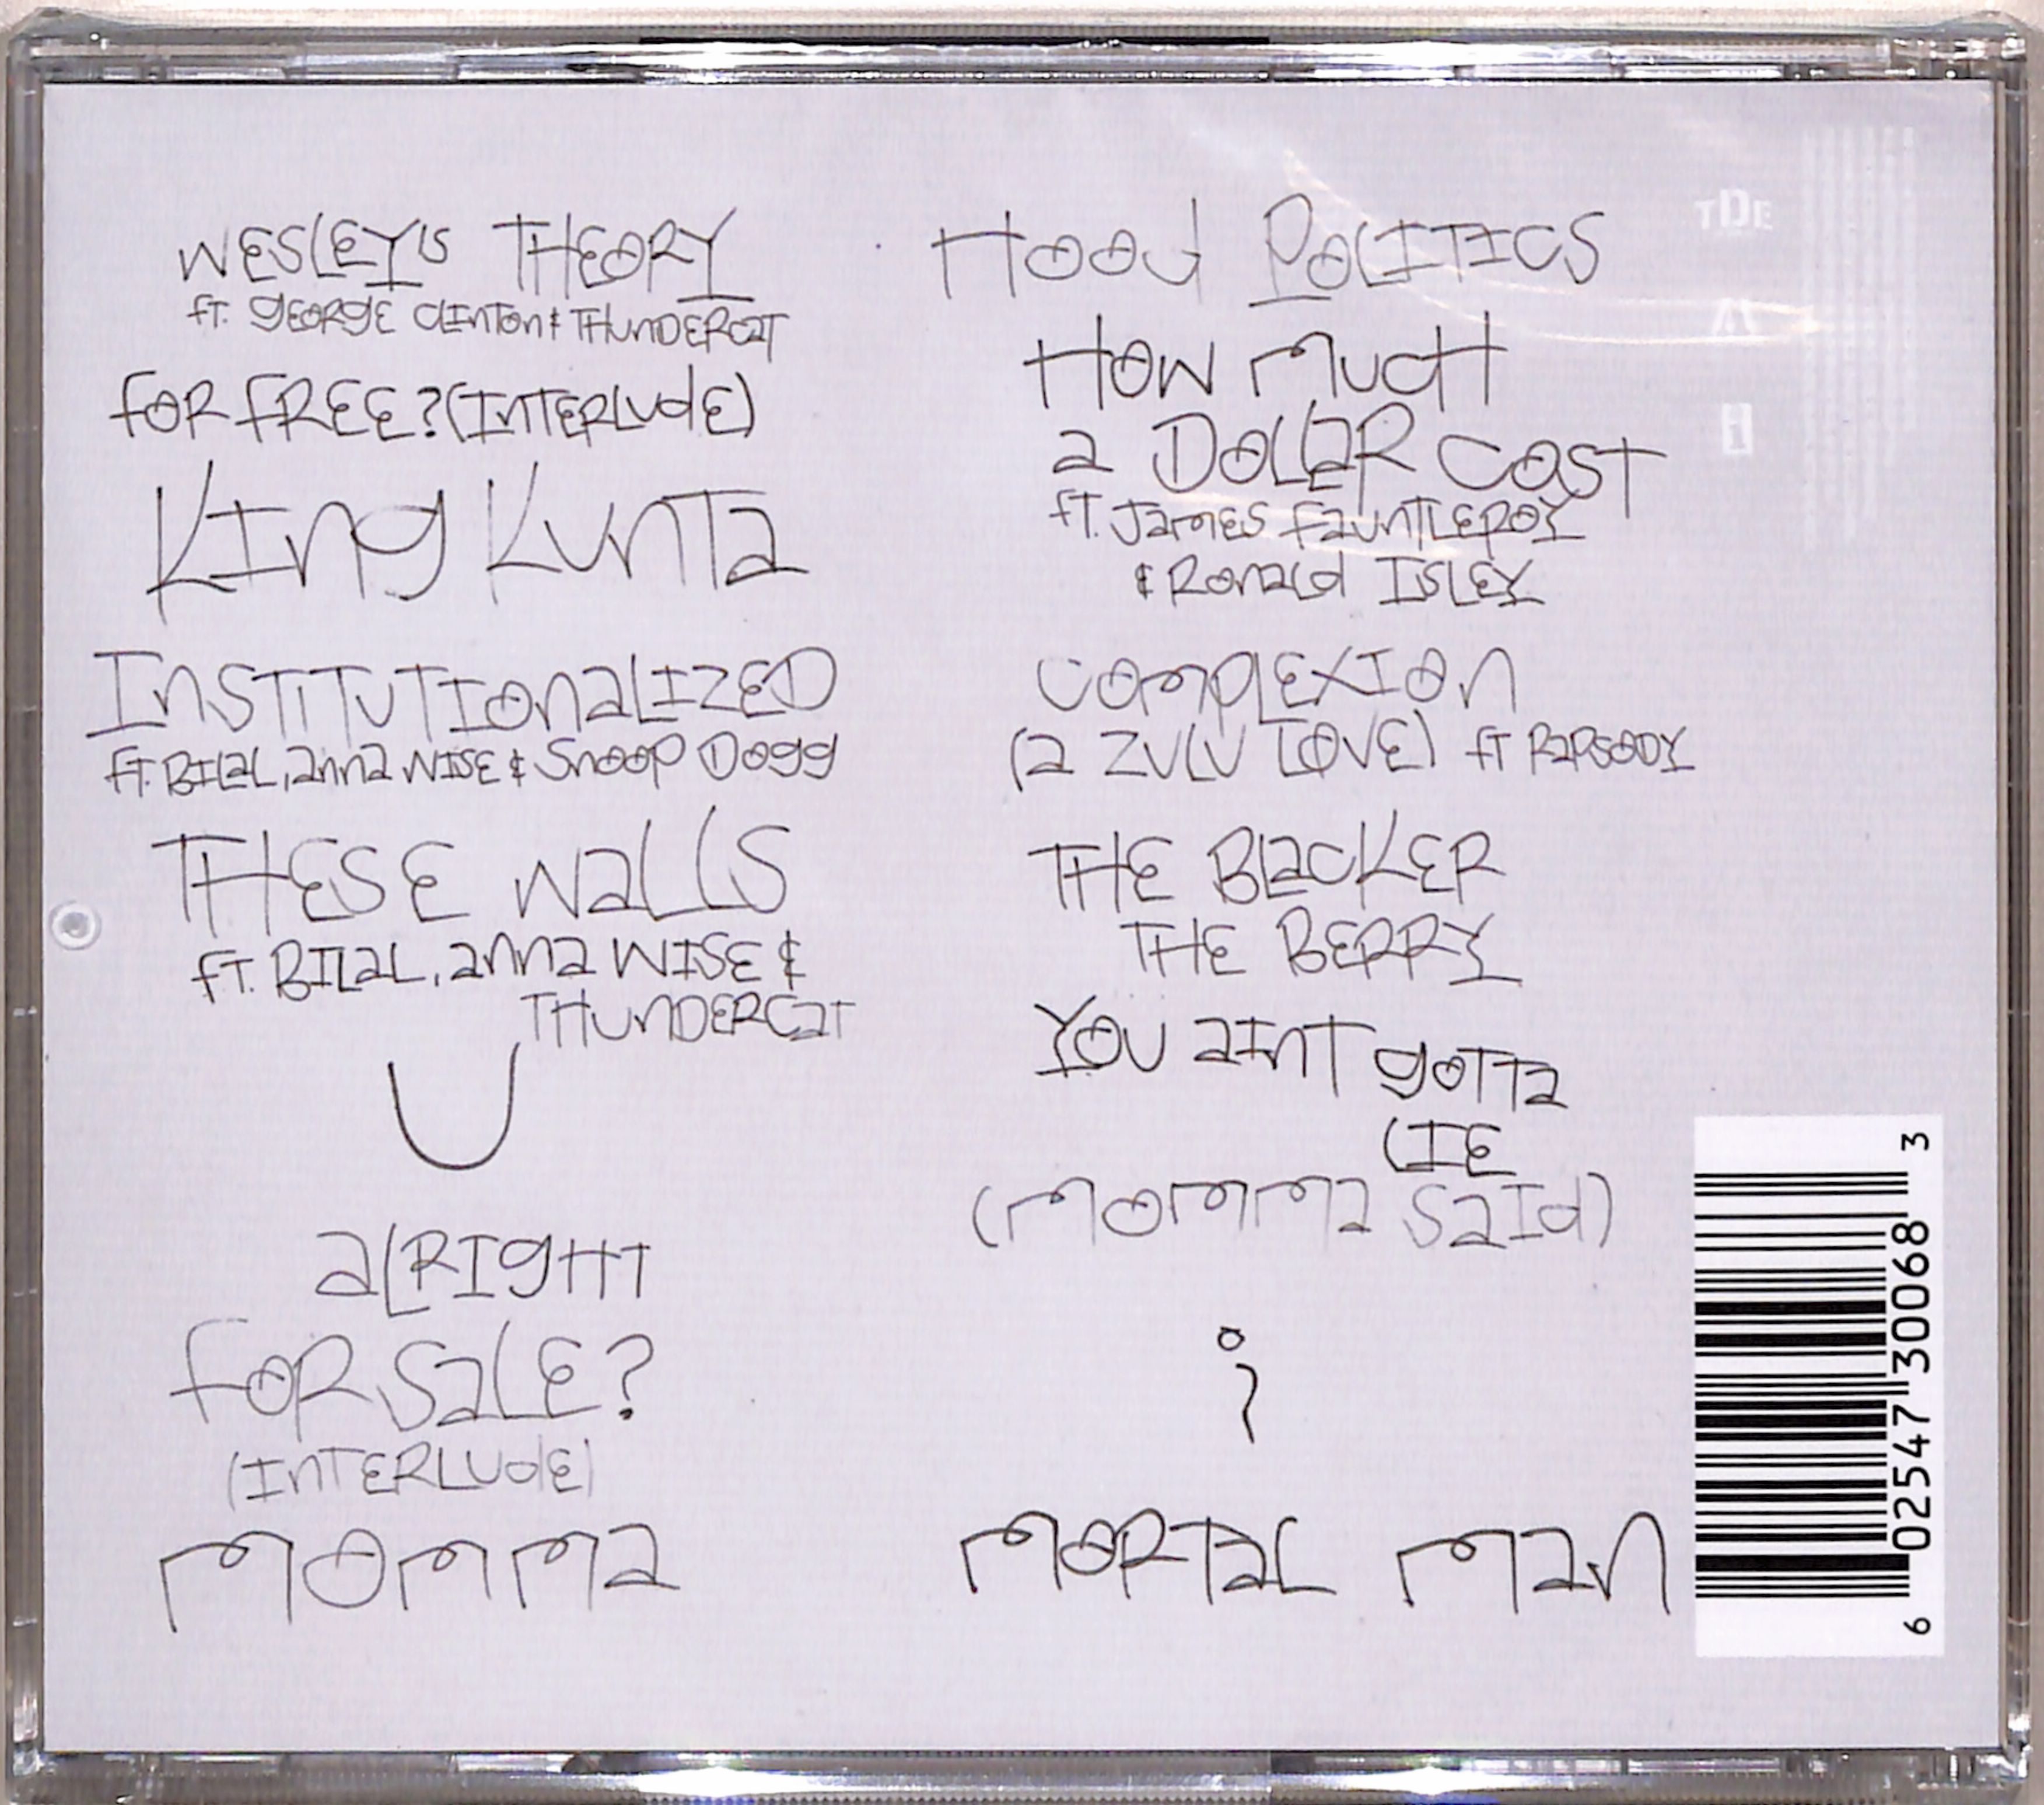 WESLEY'S THEORY
ft. GEORGE CLINTON & THUNDERCAT
FOR FREE? (INTERLUdE)
KING KUNTA
INSTITUTIONALIZED
ft. BILAL, ANNA WISE & SNOOP DOGG
THESE WALLS
ft. BILAL, ANNA WISE &
THUNDERCAT
U
ALRIGHT
FOR SALE?
(INTERLUdE)
MOMMA
HOOd POLITICS
HOW MUCH
A DOLLAR COST
ft. JAMES FAUNTLEROY
& RONALd ISLEY
COMPLEXION
(A ZULU LOVE) ft RAPSODY
THE BLACKER
THE BERRY
YOU AINT GOTTA
LIE
(MOMMA SAId)
i
MORTAL MAN
TDE
A
i
6 02547 30068 3